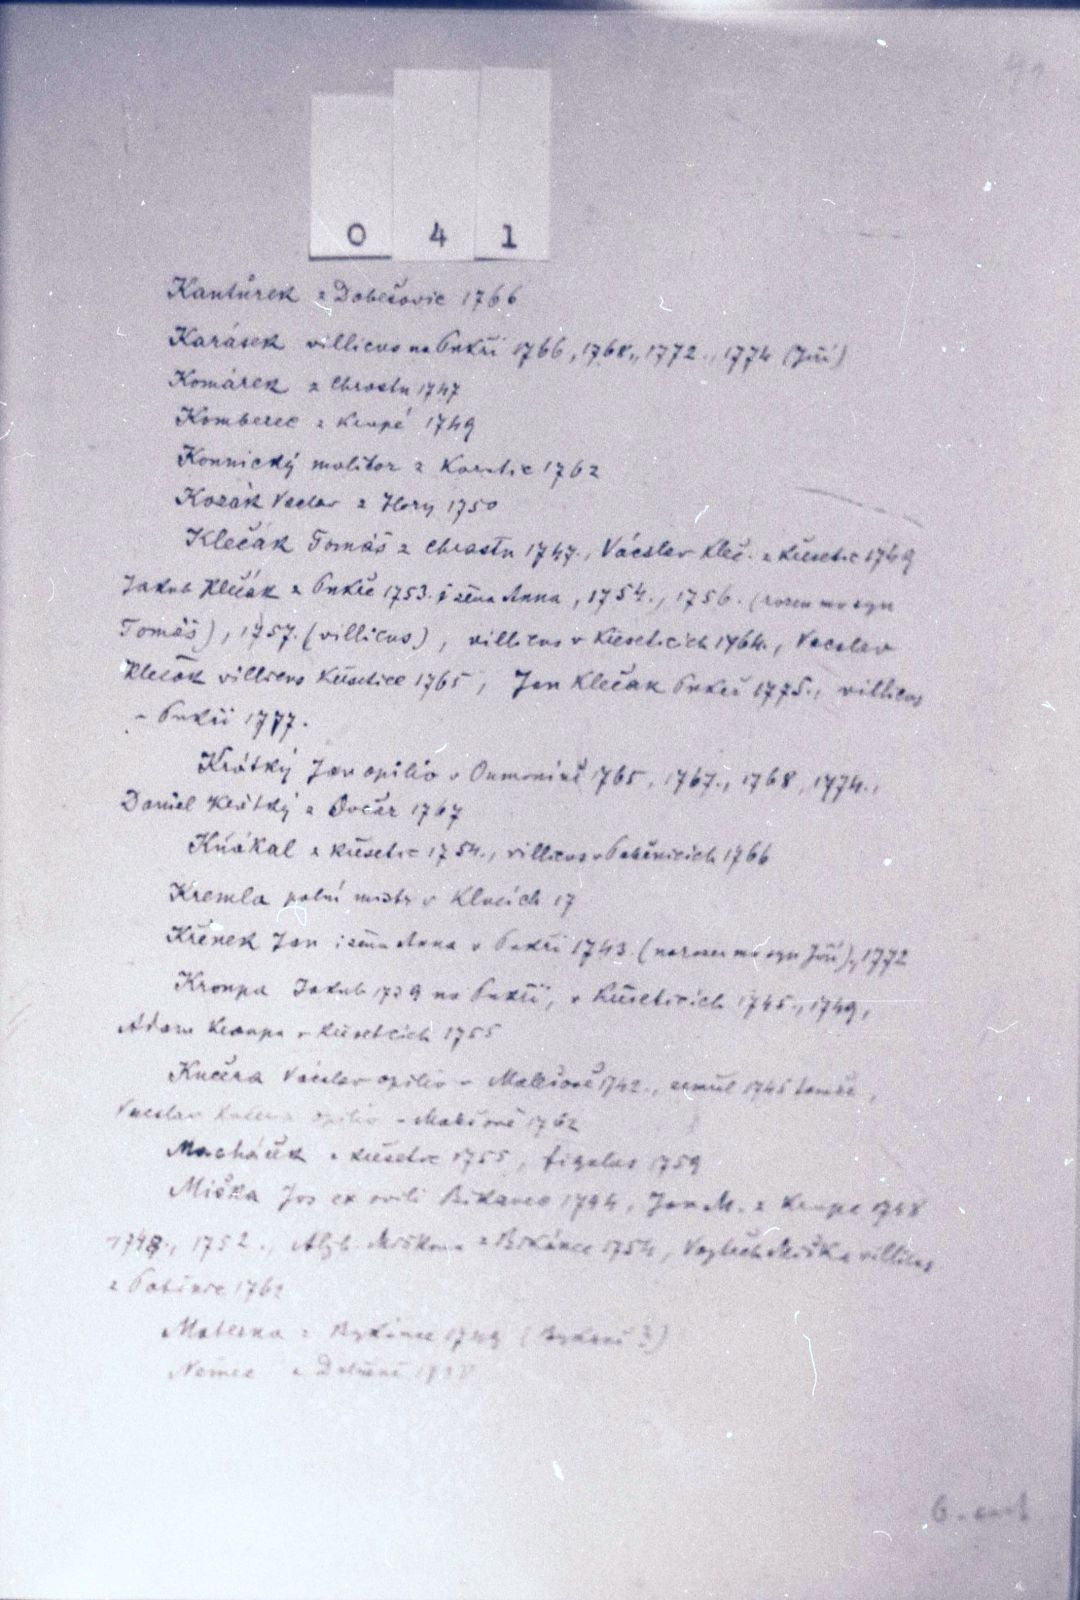 41
0 4 1
Kantůrek z Dobešovic 1766
Karásek villicus na Pukři 1766, 1768, 1772., 1774 (Jiří)
Komárek z Chrastu 1747
Komberec z Krupé 1749
Konnický molitor z 1762
Kozák Vaclav z Hory 1750
Klečák Tomáš z Chrastu 1747., Václav Kleč. z Křesetic 1749
Jakub Klečák z Pukře 1753. i žena Anna, 1754., 1756. (rozen mu syn
Tomáš), 1757. (villicus), villicus v Křeseticich 1764., Vaclav
Klečák villicus Křesetice 1765, Jan Klečák Pukř 1775., villicus
v Pukři 1777.
Krátký Jan opilio v 1765, 1767., 1768, 1774.,
Daniel Krátký z Ovčár 1767
Kňákal z Křesetic 1754., villicus v Poběnicich 1766
Kremla polní mistr v Klucích 17
Křenek Jan i žena Anna v Pukři 1743 (narozen mu syn Jiří), 1772
Kroupa Jakub 1739 na Pukři, v Křeseticích 1745., 1749,
Adam Kroupa v Křeseticich 1755
Kučera Václav opilio v Malešově 1742., zemřel 1745 tamže,
Vaclav Kučera opilio v Malešově 1762
Macháček z Křesetic 1755, figulus 1759
Miška Jos ex ovili Bikanec 1744, Jan M. z Krupe 1748
1748., 1752., Alžb. Miškova z Bikánce 1754, Vojtěch Miška villicus
z 1762
Materna z Bykánce 1749 (?)
Němec z
6. část